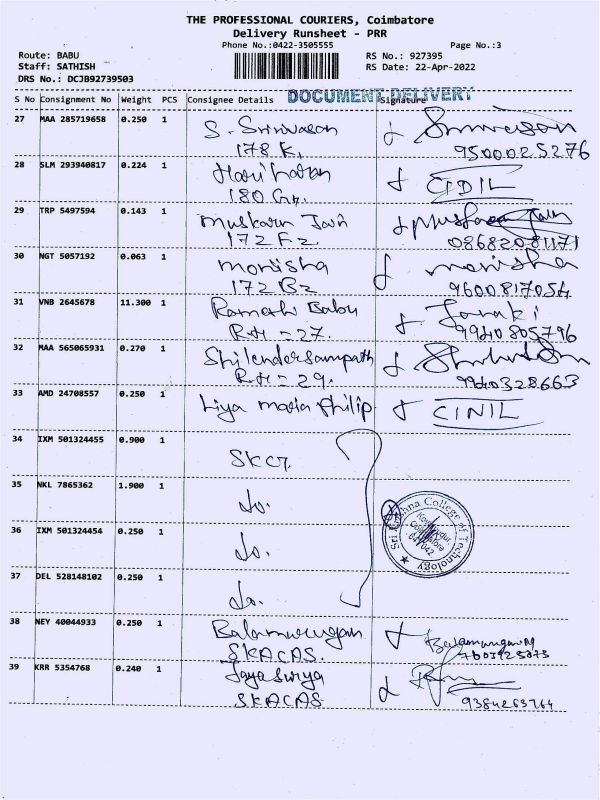 THE PROFESSIONAL COURIERS, Coimbatore
Delivery Runsheet - PRR
Phone No.:0422-3505555 Page No.:3
Route: BABU RS No.: 927395
Staff: SATHISH RS Date: 22-Apr-2022
DRS No.: DCJB92739503
DOCUMENT DELIVERY
S No Consignment No Weight PCS Consignee Details Signature
27 MAA 285719658 0.250 1 S. Srinivasan
178 K. 9500025276
28 SLM 293940817 0.224 1 Hariharan
180
29 TRP 5497594 0.143 1 Muskarn Jain
172 F2 08682081171
30 NGT 5057192 0.063 1 monisha monisha
172 B2 9600817054
31 VNB 2645678 11.300 1 Ramesh Babu Janaki
R.H = 27. 9940805796
32 MAA 565065931 0.270 1 Shilendersampath
R.H = 29. 9940328663
33 AMD 24708557 0.250 1 Liya maria Philip CINIL
34 IXM 501324455 0.900 1 SKCT.
35 NKL 7865362 1.900 1 do.
36 IXM 501324454 0.250 1 do.
37 DEL 528148102 0.250 1 do.
Sri Krishna College of Technology
Kovaipudur
Coimbatore
641 042
38 NEY 40044933 0.250 1 Balamurugan
SKACAS.
39 KRR 5354768 0.240 1 Jayasurya
SKACAS 9384263764